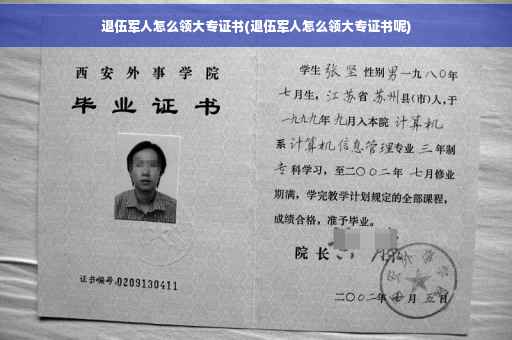 退伍军人怎么领大专证书(退伍军人怎么领大专证书呢)
西安外事学院
毕业证书
证书编号:0209130411
学生 张坚 性别 男 一九八〇年
七月生, 江苏省 苏州县(市)人,于
一九九九年 九月入本院 计算机
系 计算机信息管理专业 三 年制
专 科学习,至二〇〇二年 七月修业
期满,学完教学计划规定的全部课程,
成绩合格,准予毕业。
院长
二〇〇二年 七月 五日